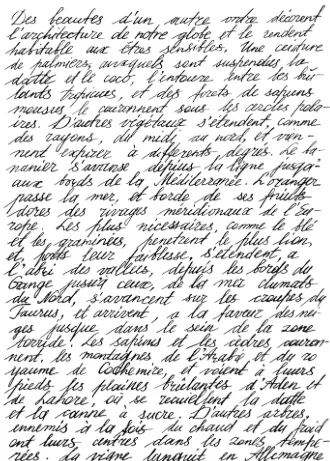 Des beautés d'un autre ordre décorent
l'architecture de notre globe et le rendent
habitable aux êtres sensibles. Une ceinture
de palmiers, auxquels sont suspendus la
datte et le coco, l'entoure entre les brû-
lants tropiques, et des forêts de sapins
mousseux le couronnent sous les cercles polai-
ires. D'autres végétaux s'étendent, comme
des rayons, du midi au nord, et vien-
nent expirer à différents degrés. Le ba-
nanier s'avance depuis la ligne jusqu'
aux bords de la Méditerranée. L'oranger
passe la mer, et borde de ses fruits
dorés des rivages méridionaux de l'Eu-
rope. Les plus nécessaires, comme le blé
et les graminées, pénètrent le plus loin,
et, forts leur faiblesse, s'étendent, à
l'abri des vallées, depuis les bords du
Gange jusqu'à ceux de la mer
du Nord, s'avancent sur les croupes du
Taurus, et arrivent, à la faveur des nei-
ges jusque dans le sein de la zone
torride. Les sapins et les cèdres couron-
nent, les montagnes de l'Arabie et du ro
yaume de Cachemire, et voient à leurs
pieds les plaines brûlantes d'Aden et
de Lahore, où se recueillent la datte
et la canne à sucre. D'autres arbres,
ennemis à la fois du chaud et du froid
ont leurs centres dans les zones tempé-
rées. La vigne languit en Allemagne